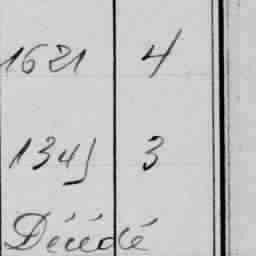 1621 4
1345 3
Décédé